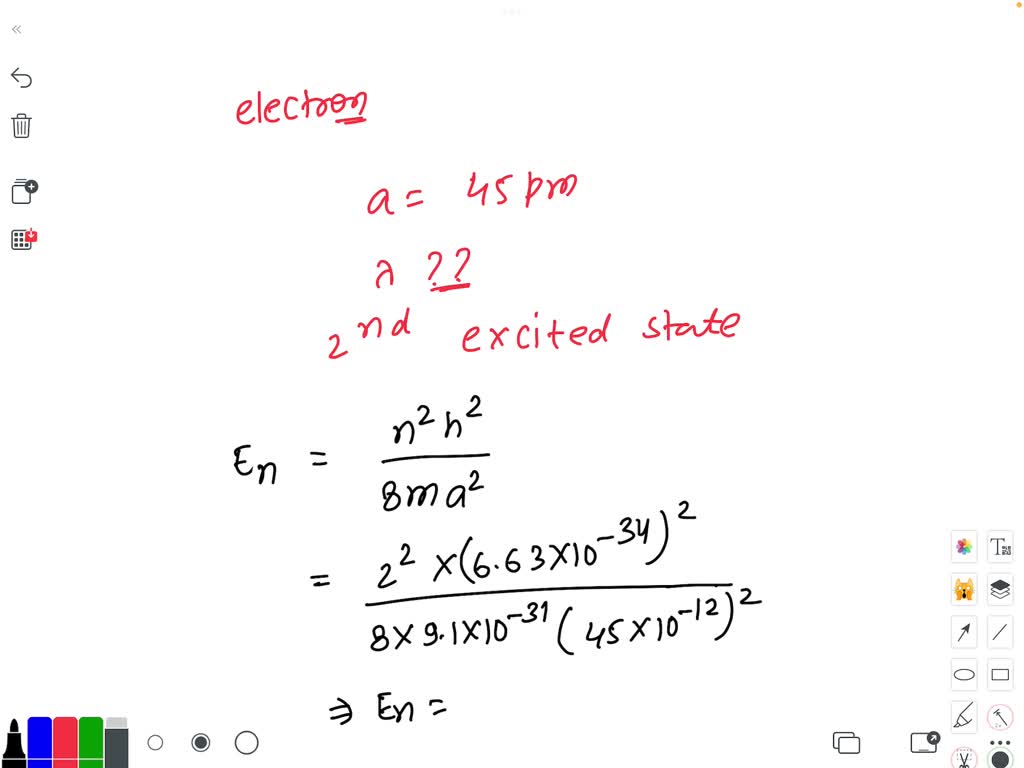 electron
a = 45 pm
λ ??
2nd excited state
En = n²h² / 8ma²
= 2² × (6.63×10⁻³⁴)² / 8×9.1×10⁻³¹ (45×10⁻¹²)²
⇒ En =